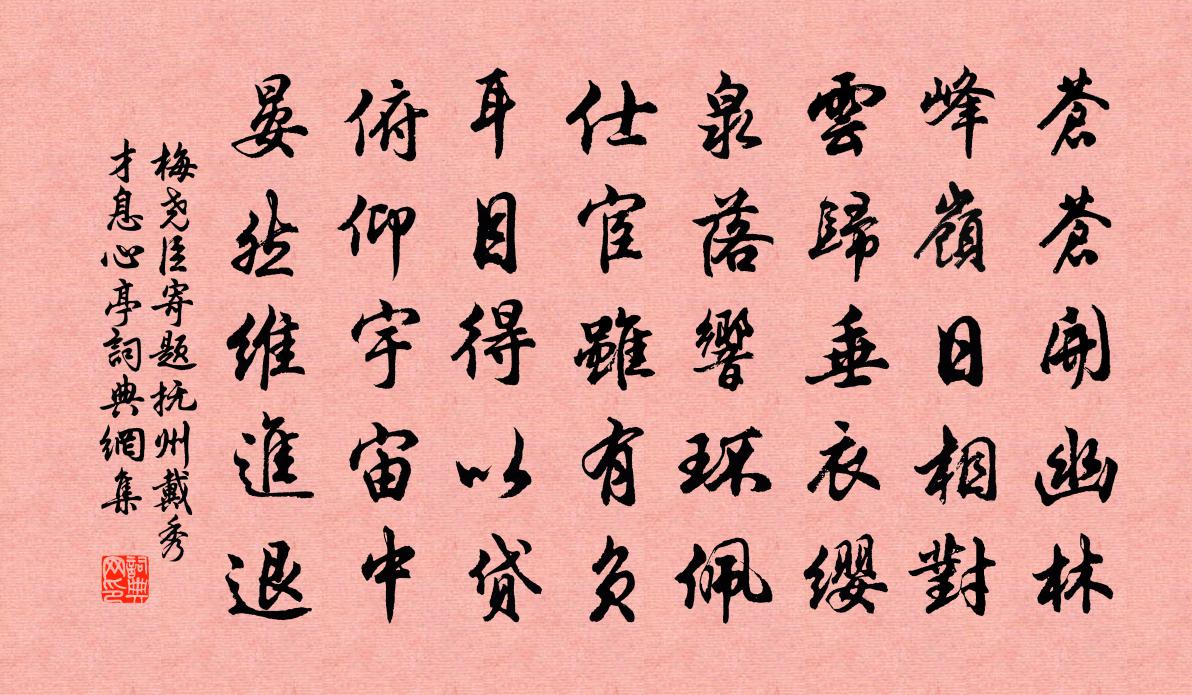 蒼蒼開幽林
峰嶺日相對
雲歸垂衣纓
泉落響環佩
仕宦雖有負
耳目得以貸
俯仰宇宙中
晏然維進退
梅尧臣寄题抚州戴秀
才息心亭詞典網集
詞典网印